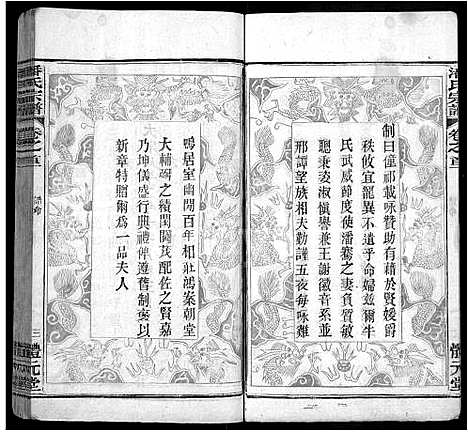 潘氏宗譜
卷之首
體元堂
制曰僮祁載咏贊助有藉於賢媛爵
秩攸宜寵異不遺乎命婦兹爾牛
氏武威節度使潘騫之妻貞質敏
聰秉姿淑愼譽兼王謝徽音系並
邢譚望族相夫勤謹五夜每咏雞
鳴居室幽閒百年相莊鴻案朝堂
大輔弼之績閨閫茂配佐之賢嘉
乃坤儀盛行典禮俾遵舊制奚以
新章特贈爾爲一品夫人
潘氏宗譜
卷之首
三
體元堂